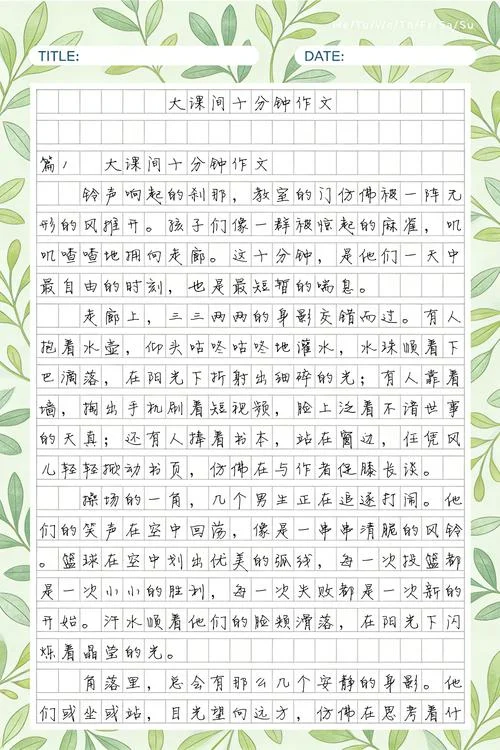 Mo/Tu/We/Th/Fr/Sa/Su
TITLE:
DATE:
大课间十分钟作文
篇1 大课间十分钟作文
铃声响起的刹那，教室的门仿佛被一阵无
形的风推开。孩子们像一群被惊起的麻雀，叽
叽喳喳地拥向走廊。这十分钟，是他们一天中
最自由的时刻，也是最短暂的喘息。
走廊上，三三两两的身影交错而过。有人
抱着水壶，仰头咕咚咕咚地灌水，水珠顺着下
巴滴落，在阳光下折射出细碎的光；有人靠着
墙，掏出手机刷着短视频，脸上泛着不谙世事
的天真；还有人捧着书本，站在窗边，任凭风
儿轻轻掀动书页，仿佛在与作者促膝长谈。
操场的一角，几个男生正在追逐打闹。他
们的笑声在空中回荡，像是一串串清脆的风铃
。篮球在空中划出优美的弧线，每一次投篮都
是一次小小的胜利，每一次失败都是一次新的
开始。汗水顺着他们的脸颊滑落，在阳光下闪
烁着晶莹的光。
角落里，总会有那么几个安静的身影。他
们或坐或站，目光望向远方，仿佛在思考着什